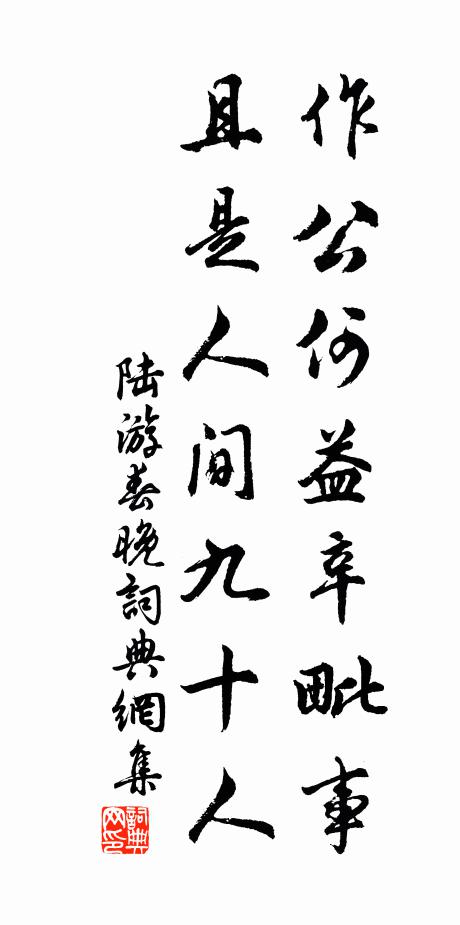 作公何益辛毗事
且是人間九十人
陸游春晚詞典網集
詞典网印